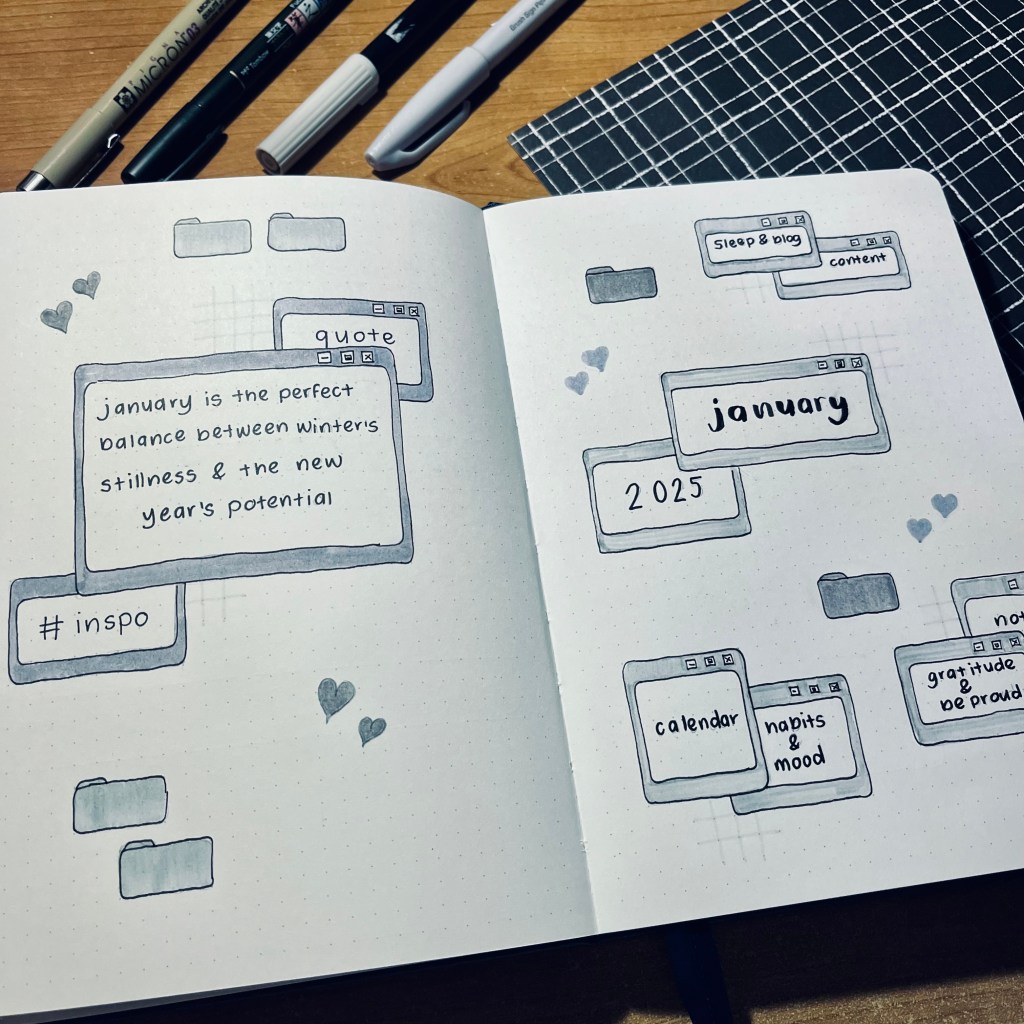 MICRON 03
Tombow
Brush Sign Pen
quote
january is the perfect
balance between winter's
stillness & the new
year's potential
# inspo
sleep & blog
content
january
2025
gratitude
&
be proud
calendar
habits
&
mood